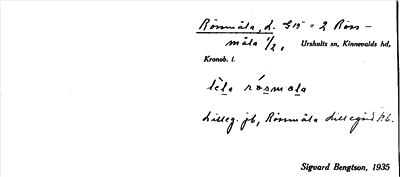 Rösmåla, L. G15 = 2 Rös-
måla ½, Urshults sn, Kinnevalds hd,
Kronob. l.
rósmɑla
Lilleg. jb, Rösmåla Lillegård hb.
Sigvard Bengtson, 1935